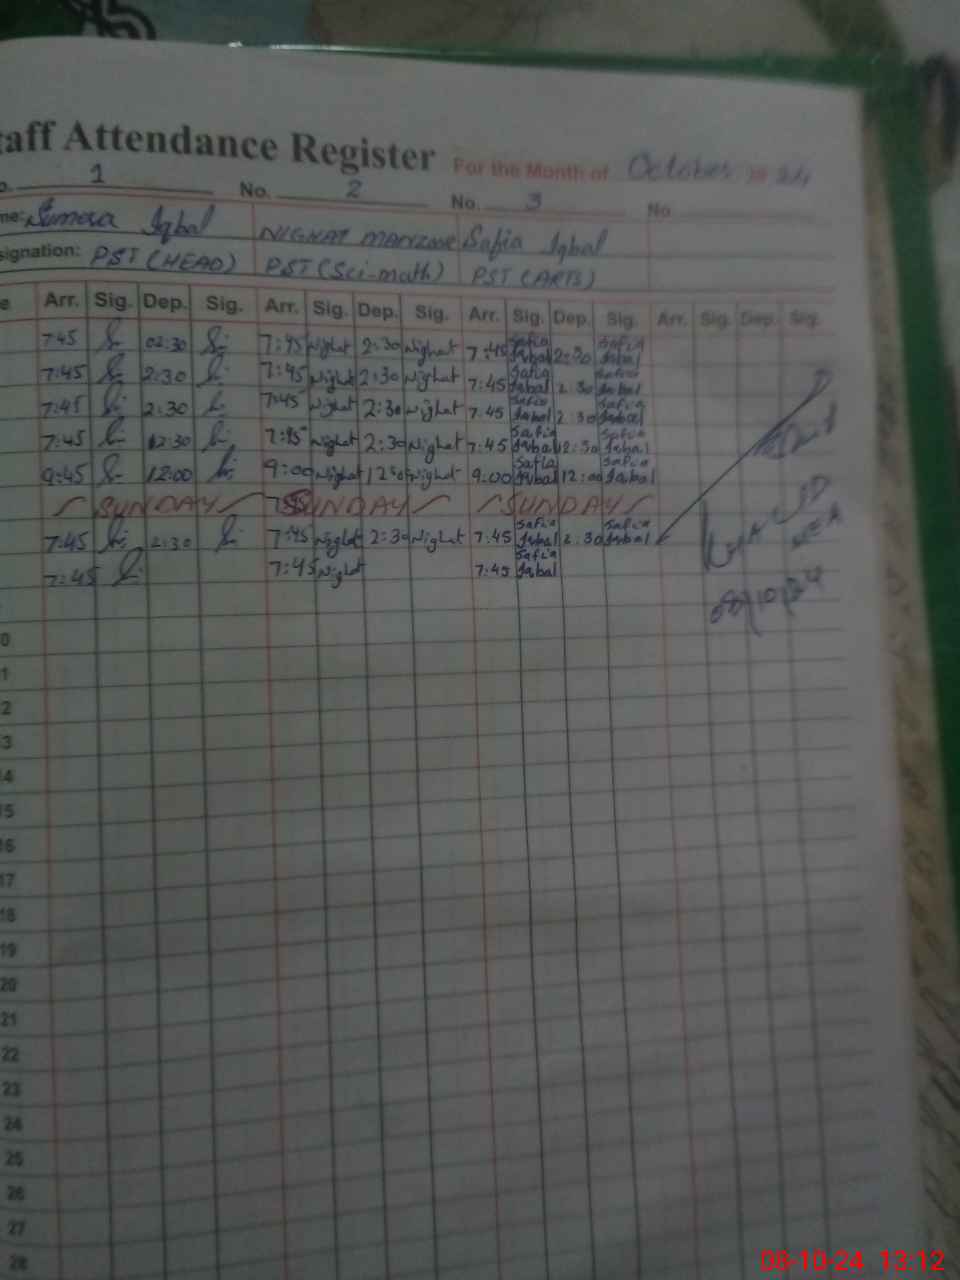 taff Attendance Register For the Month of October 24
o. 1 No. 2 No. 3 No.
me: Sumera Iqbal NIGHAT MANZOOR Safia Iqbal
signation: PST (HEAD) PST (Sci-math) PST (ARTS)
e Arr. Sig. Dep. Sig. Arr. Sig. Dep. Sig. Arr. Sig. Dep. Sig. Arr. Sig. Dep. Sig.
7:45 02:30 7:45 Nighat 2:30 Nighat 7:45 Safia Iqbal 2:30 Safia Iqbal
7:45 2:30 7:45 Nighat 2:30 Nighat 7:45 Safia Iqbal 2:30 Safia Iqbal
7:45 2:30 7:45 Nighat 2:30 Nighat 7:45 Safia Iqbal 2:30 Safia Iqbal
7:45 2:30 7:45 Nighat 2:30 Nighat 7:45 Safia Iqbal 2:30 Safia Iqbal
9:45 12:00 9:00 Nighat 12:00 Nighat 9:00 Safia Iqbal 12:00 Safia Iqbal
SUNDAY SUNDAY SUNDAY
7:45 2:30 7:45 Nighat 2:30 Nighat 7:45 Safia Iqbal 2:30 Safia Iqbal
7:45 7:45 Nighat 7:45 Safia Iqbal
MEA
08/10/24
0
1
2
3
4
5
16
17
18
19
20
21
22
23
24
25
26
27
28
08-10-24 13:12